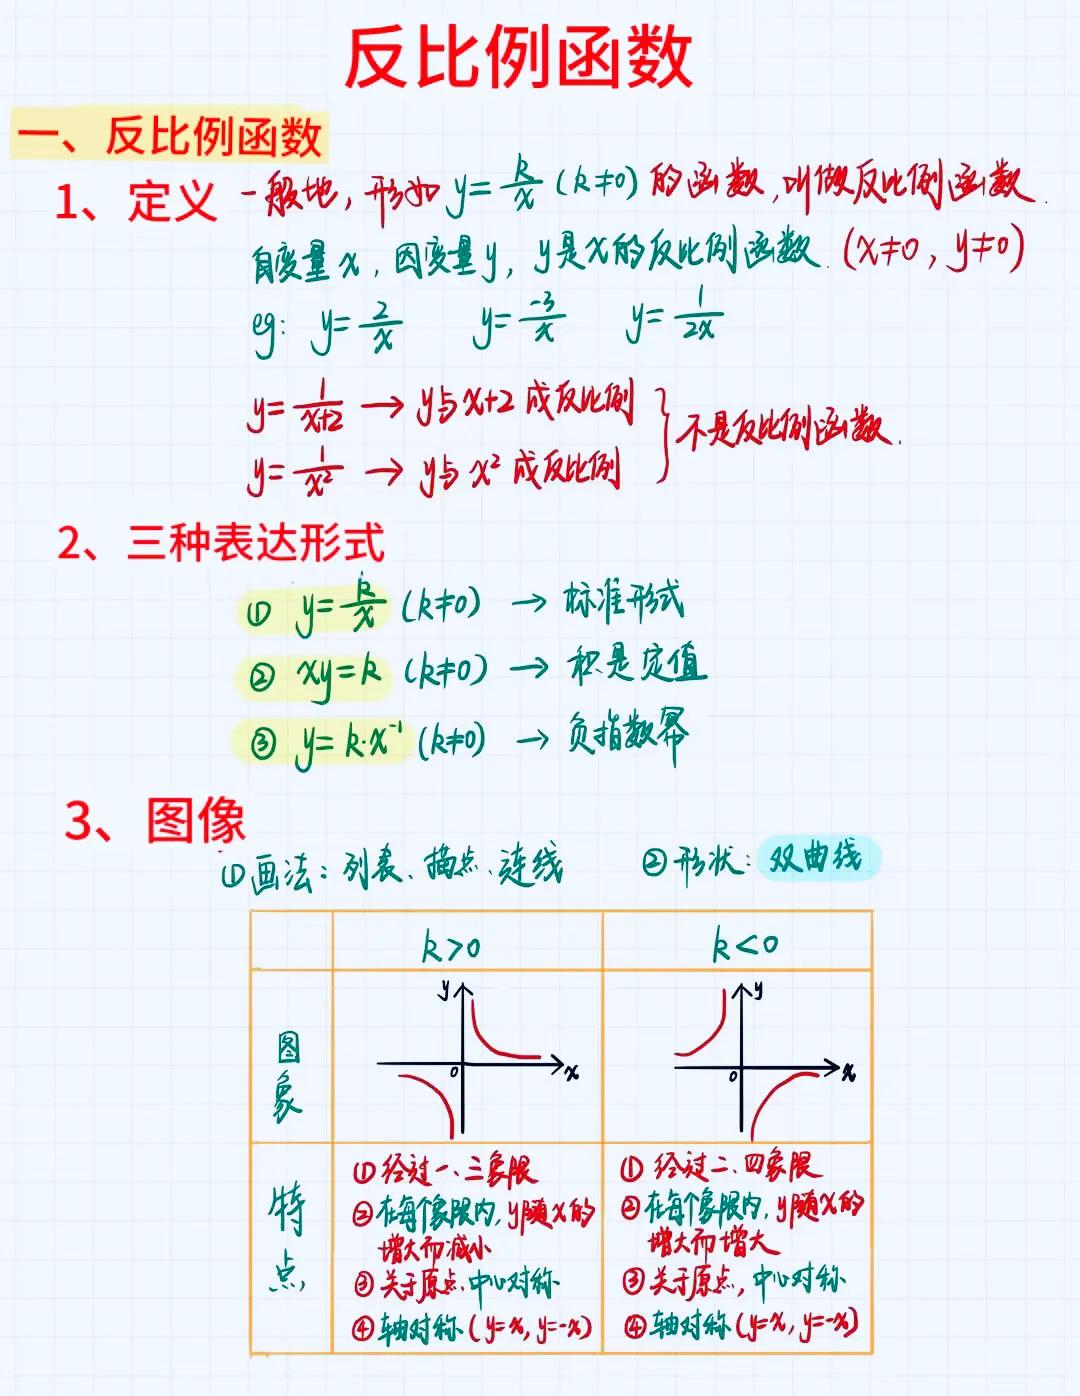 反比例函数
一、反比例函数
1、定义 一般地，形如 y=k/x (k≠0) 的函数，叫做反比例函数.
自变量x，因变量y，y是x的反比例函数.(x≠0，y≠0)
eg: y=2/x y=-3/x y=1/2x
y=1/x+2 → y与x+2 成反比例
y=1/x² → y与x²成反比例
不是反比例函数.
2、三种表达形式
① y=k/x (k≠0) → 标准形式
② xy=k (k≠0) → 积是定值
③ y=k·x⁻¹ (k≠0) → 负指数幂
3、图像
①画法：列表、描点、连线 ②形状：双曲线
k>0 k<0
图象
y x 0
y x 0
特点
①经过一、三象限
②在每个象限内，y随x的
增大而减小
③关于原点，中心对称
④轴对称(y=x, y=-x)
①经过二、四象限
②在每个象限内，y随x的
增大而增大
③关于原点，中心对称
④轴对称(y=x, y=-x)